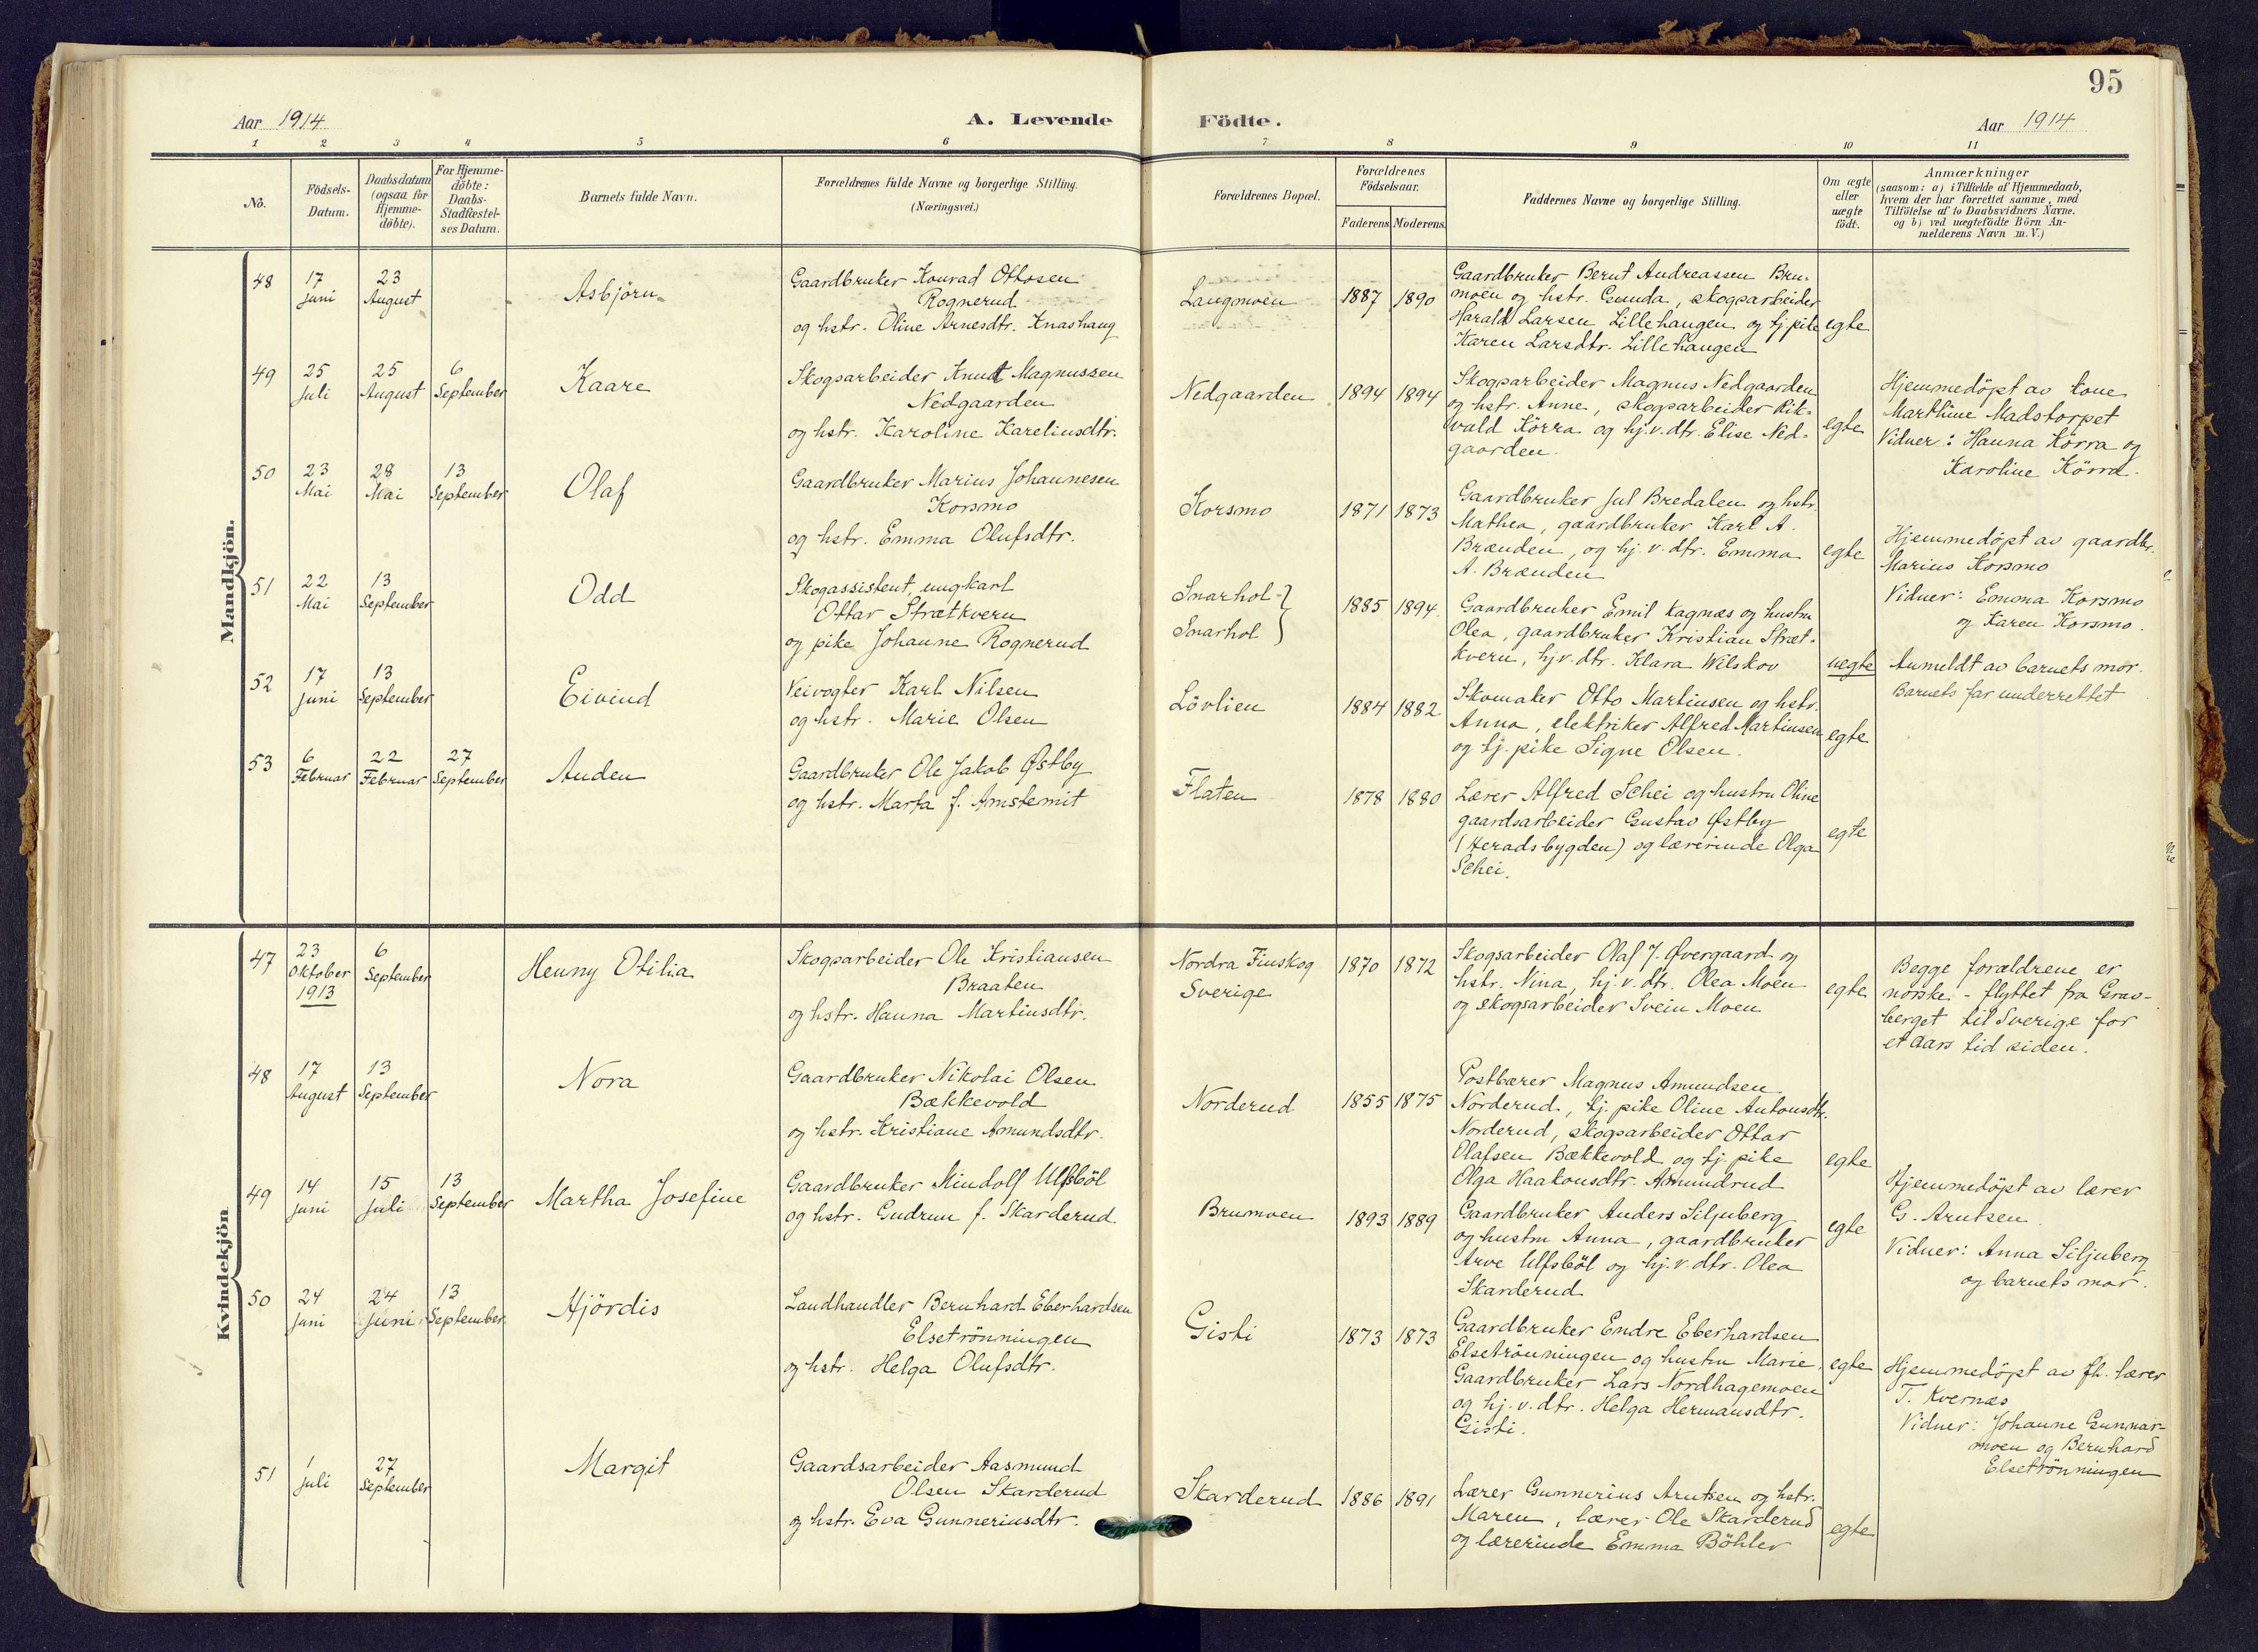 95
Aar 1914
A. Levende Födte.
Aar 1914
1 2 3 4 5 6 7 8 9 10 11
No.
Födsels-
Datum.
Daabsdatum
(ogsaa for
Hjemme-
döbte).
For Hjemme-
döbte:
Daabs-
Stadfæstel-
ses Datum.
Barnets fulde Navn.
Forældrenes fulde Navne og borgerlige Stilling.
(Næringsvei.)
Forældrenes Bopæl.
Forældrenes
Födselsaar.
Faderens Moderens
Faddernes Navne og borgerlige Stilling.
Om ægte
eller
uægte
födt.
Anmærkninger
(saasom: a) i Tilfælde af Hjemmedaab,
hvem der har forrettet samme, med
Tilföielse af to Daabsvidners Navne,
og b) ved uægtefödte Börn An-
melderens Navn m. V.)
Mandkjön.
48
17
Juni
23
August
Asbjörn
Gaardbruker Konrad Ottosen
Rognerud
og hstr. Oline Arnesdtr. Knashaug
Langmoen
1887
1890
Gaardbruker Bernt Andreassen Bru-
moen og hstr. Gunda, skogsarbeider
Harald Larsen Lillehaugen og tj. pike
Karen Larsdtr. Lillehaugen
egte
49
25
Juli
25
August
6
September
Kaare
Skogsarbeider Knut Magnussen
Nedgaarden
og hstr. Karoline Kareliusdtr.
Nedgaarden
1894
1894
Skogsarbeider Magnus Nedgaarden
og hstr. Anne, skogsarbeider Rik-
vald Körra og hj.v.dtr. Elise Ned-
gaarden.
egte
Hjemmedöpt av kone
Marthine Madstorpet
Vidner: Hanna Körra og
Karoline Körra.
50
23
Mai
28
Mai
13
September
Olaf
Gaardbruker Marius Johannesen
Korsmo
og hstr. Emma Olufsdtr.
Korsmo
1871
1873
Gaardbruker Jul Bredalen og hstr.
Mathea, gaardbruker Karl A.
Brænden, og hj.v.dtr. Emma
A. Brænden
egte
Hjemmedöpt av gaardbr.
Marius Korsmo
Vidner: Emma Korsmo
og Karen Korsmo.
51
22
Mai
13
September
Odd
Skogassistent, ungkarl
Ottar Strætkvern
og pike Johanne Rognerud
Snarhol
Snarhol
1885
1894
Gaardbruker Emil Kagnæs og hustru
Olea, gaardbruker Kristian Stræt-
kvern, hjv. dtr. Klara Vilskov
uegte
Anmeldt av barnets mor.
Barnets far underrettet
52
17
Juni
13
September
Eivind
Veivogter Karl Nilsen
og hstr. Marie Olsen
Lövlien
1884
1882
Skomaker Otto Martinsen og hstr.
Anna, elektriker Alfred Martinsen
og tj. pike Signe Olsen.
egte
53
6
Februar
22
Februar
27
September
Auden
Gaardbruker Ole Jakob Østby
og hstr. Marta f. Arnstemit
Flaten
1878
1880
Lærer Alfred Schei og hustru Oline
gaardsarbeider Gustav Østby
(Heradsbygden) og lærerinde Olga
Schei.
egte
Kvindekjön
47
23
Oktober
1913
6
September
Henny Otilia
Skogsarbeider Ole Kristiansen
Braaten
og hstr. Hanna Martinsdtr.
Nordra Finskog
Sverige
1870
1872
Skogsarbeider Olaf J. Øvergaard og
hstr. Nina, hj.v.dtr. Olea Moen
og skogsarbeider Svein Moen
egte
Begge forældrene er
norske - flyttet fra Grav-
berget til Sverige for
et aars tid siden.
48
17
August
13
September
Nora
Gaardbruker Nikolai Olsen
Bækkevold
og hstr. Kristiane Amundsdtr.
Norderud
1855
1875
Postbærer Magnus Amundsen
Norderud, tj. pike Oline Antonsdtr.
Norderud, skogsarbeider Ottar
Olafsen Bækkevold og tj. pike
Olga Haakonsdtr. Amundrud
egte
49
14
Juni
15
Juli
13
September
Martha Josefine
Gaardbruker Mindolf Ulfsböl
og hstr. Gudrun f. Skarderud.
Brumoen
1893
1889
Gaardbruker Anders Siljuberg
og hustru Anna, gaardbruker
Arve Ulfsböl og hj.v.dtr. Olea
Skarderud
egte
Hjemmedöpt av lærer
G. Arntsen.
Vidner: Anna Siljuberg
og barnets mor.
50
24
Juni
24
Juni
13
September
Hjördis
Landhandler Bernhard Eberhardsen
Elsetrönningen
og hstr. Helga Olufsdtr.
Gisti
1873
1873
Gaardbruker Endre Eberhardsen
Elsetrönningen og hustru Marie,
Gaardbruker Lars Nordhagemoen
og hj.v.dtr. Helga Hermansdtr.
Gisti.
egte
Hjemmedöpt av fh. lærer
T. Kvernæs
Vidner: Johanne Gunnar-
moen og Bernhard
Elsetrönningen
51
1
Juli
27
September
Margit
Gaardsarbeider Aasmund
Olsen Skarderud
og hstr. Eva Gunneriusdtr.
Skarderud
1886
1891
Lærer Gunnerius Arntsen og hstr.
Maren, lærer Ole Skarderud
og lærerinde Emma Böhler
egte